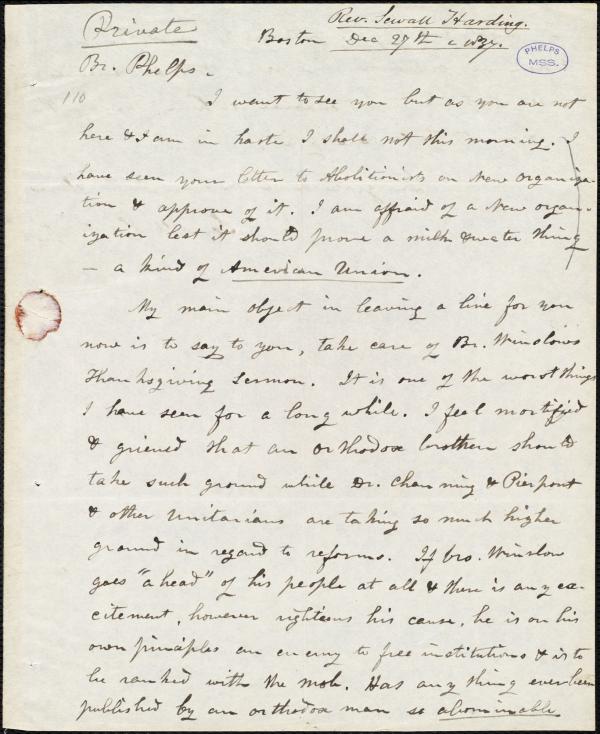 Rev. Sewall Harding.
Private
Boston Dec 27th 1837.
PHELPS
MSS.
Br. Phelps.
110
I want to see you but as you are not
here & I am in haste I shall not this morning. I
have seen your letter to Abolitionists on New Organiza-
tion & approve of it. I am affraid of a New organ-
ization lest it should prove a milk & water thing
– a kind of American Union.
My main object in leaving a line for you
now is to say to you, take care of Br. Winslow's
Thanksgiving Sermon. It is one of the worst things
I have seen for a long while. I feel mortified
& grieved that an orthodox brother should
take such ground while Dr. Channing & Pierpont
& other Unitarians are taking so much higher
ground in regard to reforms. If bro. Winslow
goes "ahead" of his people at all & there is any ex-
citement, however righteous his cause, he is on his
own principles an enemy to free institutions & is to
be ranked with the mob. Has any thing ever been
published by an orthodox man so abominable